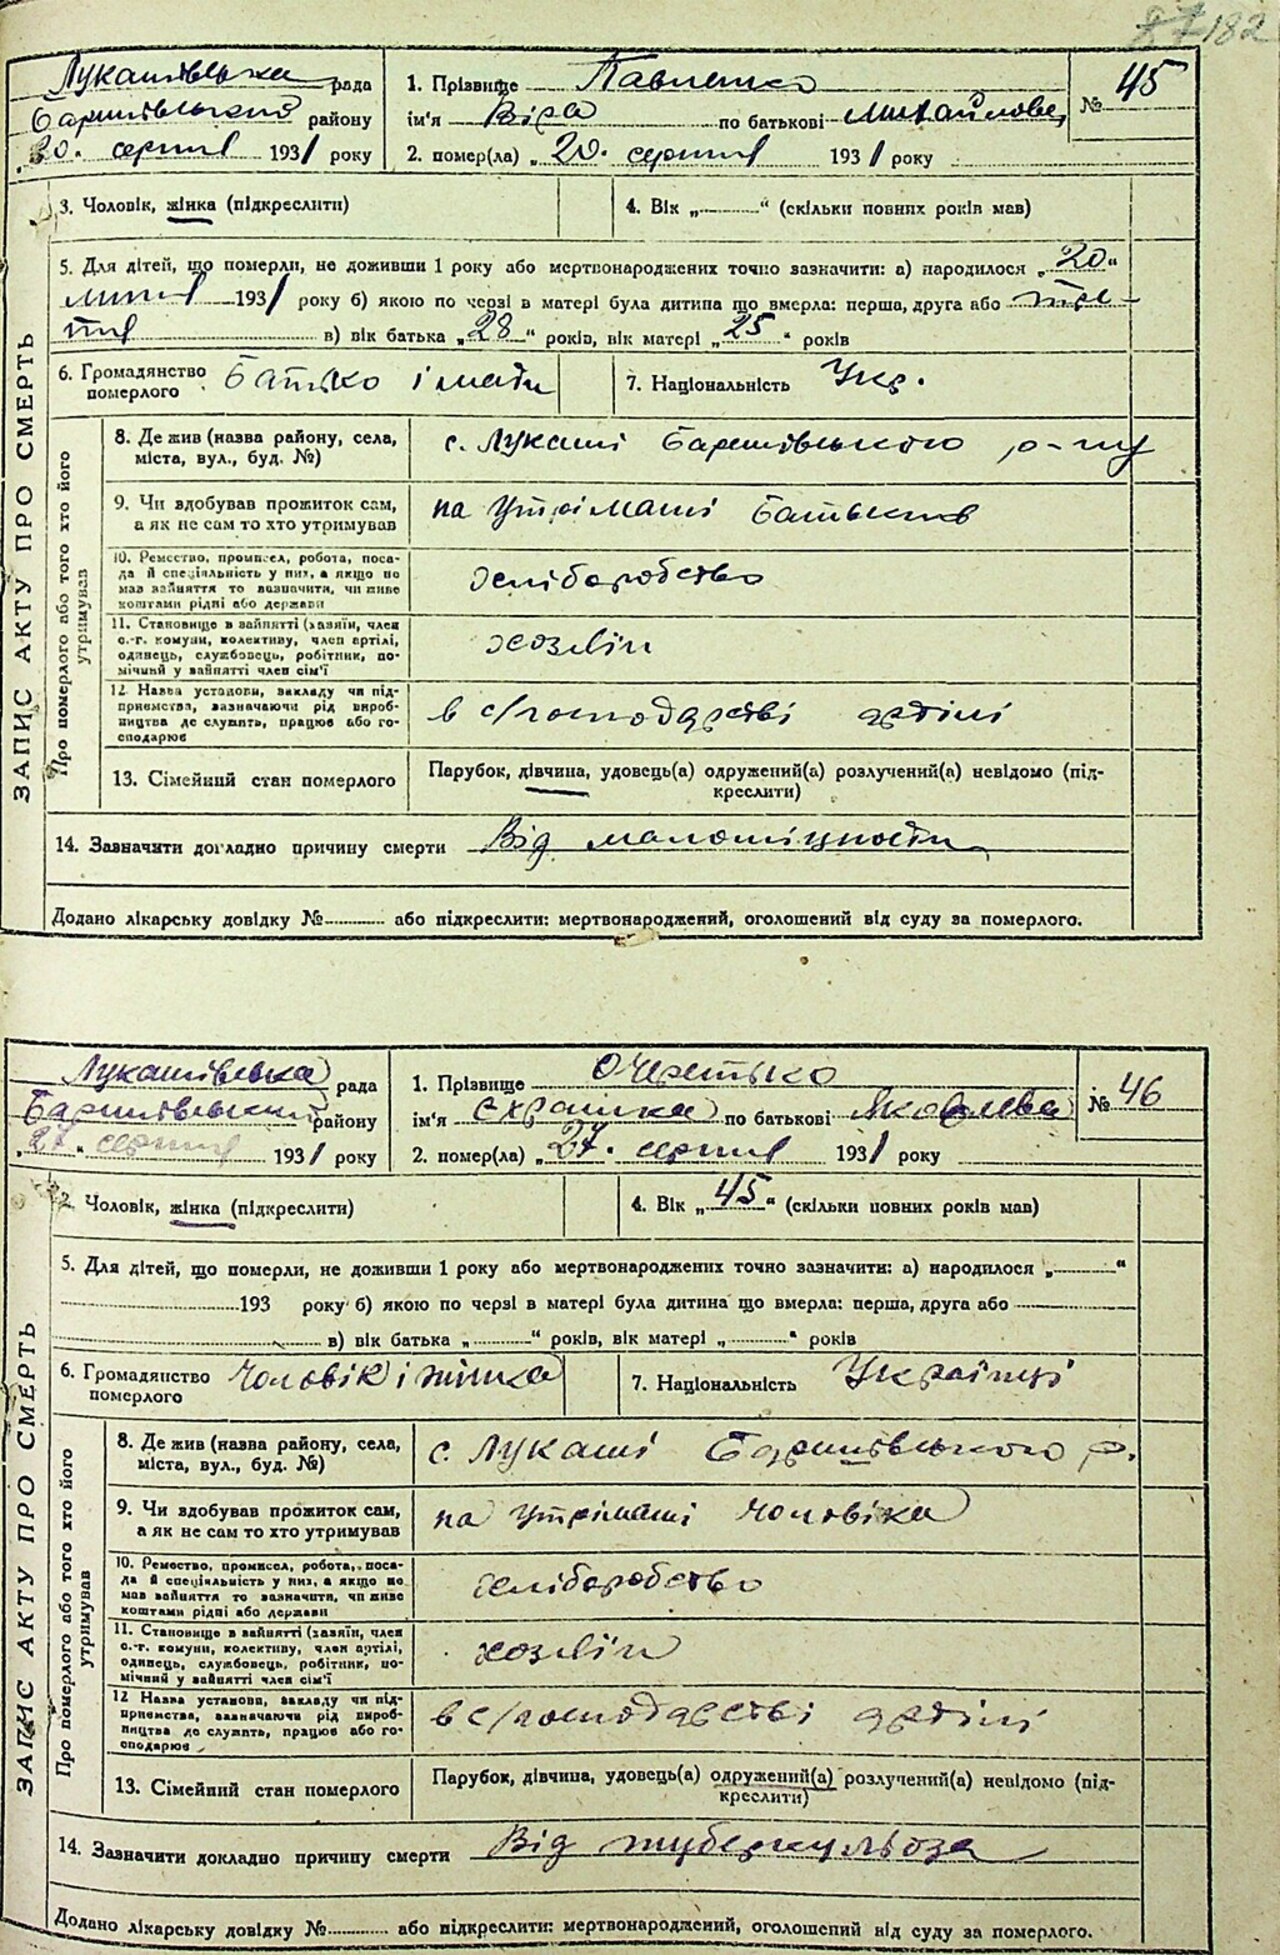 87 182
Лукашівська рада
Баришівський району
„20“ серпня 1931 року
1. Прізвище Павленко
ім'я Віра по батькові Михайлове,
2. помер(ла) „20. серпня 1931 року
№ 45
3. Чоловік, жінка (підкреслити)
4. Вік „ “ (скільки повних років мав)
5. Для дітей, що померли, не доживши 1 року або мертвонароджених точно зазначити: а) народилося „20“
липня 1931 року б) якою по черзі в матері була дитина що вмерла: перша, друга або тре-
тя в) вік батька „28“ років, вік матері „25“ років
6. Громадянство
померлого
Батько і мати
7. Національність Укр.
ЗАПИС АКТУ ПРО СМЕРТЬ
Про померлого або того хто його
утримував
8. Де жив (назва району, села,
міста, вул., буд. №)
с. Лукаші Баришівського р-ну
9. Чи здобував прожиток сам,
а як не сам то хто утримував
на утріманні батьків
10. Ремество, промисел, робота, поса-
да й спеціяльність у них, а якщо не
мав зайняття то зазначити, чи живе
коштами рідні або держави
хліборобство
11. Становище в зайнятті (хазяїн, член
с.-г. комуни, колективу, член артілі,
одинець, службовець, робітник, по-
мічний у зайнятті член сім'ї
хозяїн
12 Назва установи, закладу чи під-
приємства, зазначаючи рід вироб-
ництва де служить, працює або го-
сподарює
в с/господарстві артілі
13. Сімейний стан померлого
Парубок, дівчина, удовець(а) одружений(а) розлучений(а) невідомо (під-
креслити)
14. Зазначити докладно причину смерти Від малоліцности
Додано лікарську довідку № або підкреслити: мертвонароджений, оголошений від суду за померлого.
Лукашівська рада
Баришівський району
„27“ серпня 1931 року
1. Прізвище Очеретько
ім'я по батькові Яковлева
2. помер(ла) „27. серпня 1931 року
№ 46
Чоловік, жінка (підкреслити)
4. Вік „45“ (скільки повних років мав)
5. Для дітей, що померли, не доживши 1 року або мертвонароджених точно зазначити: а) народилося „ “
193 року б) якою по черзі в матері була дитина що вмерла: перша, друга або
в) вік батька „ “ років, вік матері „ “ років
6. Громадянство
померлого
Чоловік і жінка
7. Національність Українці
ЗАПИС АКТУ ПРО СМЕРТЬ
Про померлого або того хто його
утримував
8. Де жив (назва району, села,
міста, вул., буд. №)
с. Лукаші Баришівського р.
9. Чи здобував прожиток сам,
а як не сам то хто утримував
на утріманні чоловіка
10. Ремество, промисел, робота, поса-
да й спеціяльність у них, а якщо не
мав зайняття то зазначити, чи живе
коштами рідні або держави
хліборобство
11. Становище в зайнятті (хазяїн, член
с.-г. комуни, колективу, член артілі,
одинець, службовець, робітник, по-
мічний у зайнятті член сім'ї
хозяїн
12 Назва установи, закладу чи під-
приємства, зазначаючи рід вироб-
ництва де служить, працює або го-
сподарює
в с/господарстві артілі
13. Сімейний стан померлого
Парубок, дівчина, удовець(а) одружений(а) розлучений(а) невідомо (під-
креслити)
14. Зазначити докладно причину смерти Від туберкульоза
Додано лікарську довідку № або підкреслити: мертвонароджений, оголошений від суду за померлого.